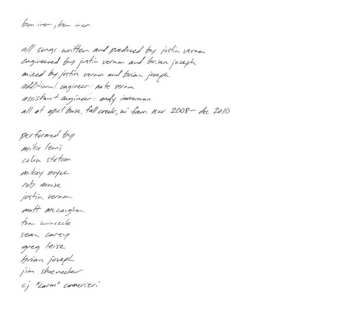 bon iver, bon iver
all songs written and produced by justin vernon
engineered by justin vernon and brian joseph
mixed by justin vernon and brian joseph
additional engineer nate vernon
assistant engineer
all at april base, fall creek, wi from nov 2008 - dec 2010
performed by
mike lewis
colin stetson
mikey noyce
rob moose
justin vernon
matt mccaughan
tom wincek
sean carey
greg leisz
brian joseph
jim schoenecker
cj "carm" camerieri